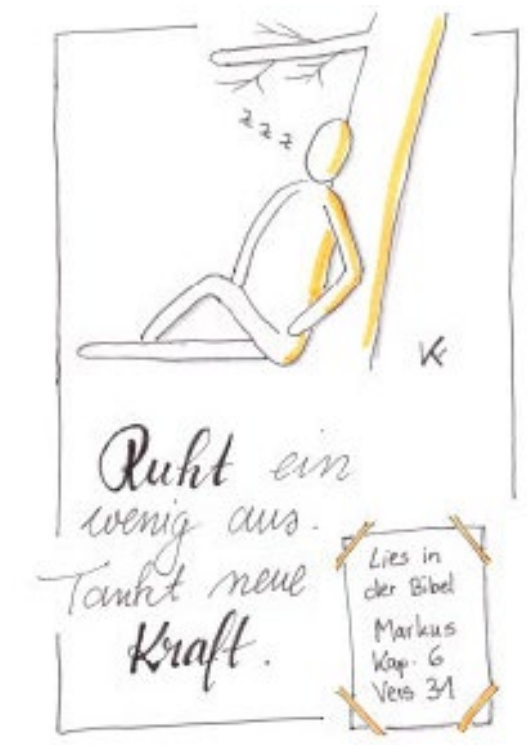 z z z
K
Ruht ein
wenig aus.
Tankt neue
Kraft.
Lies in
der Bibel
Markus
Kap. 6
Vers 31